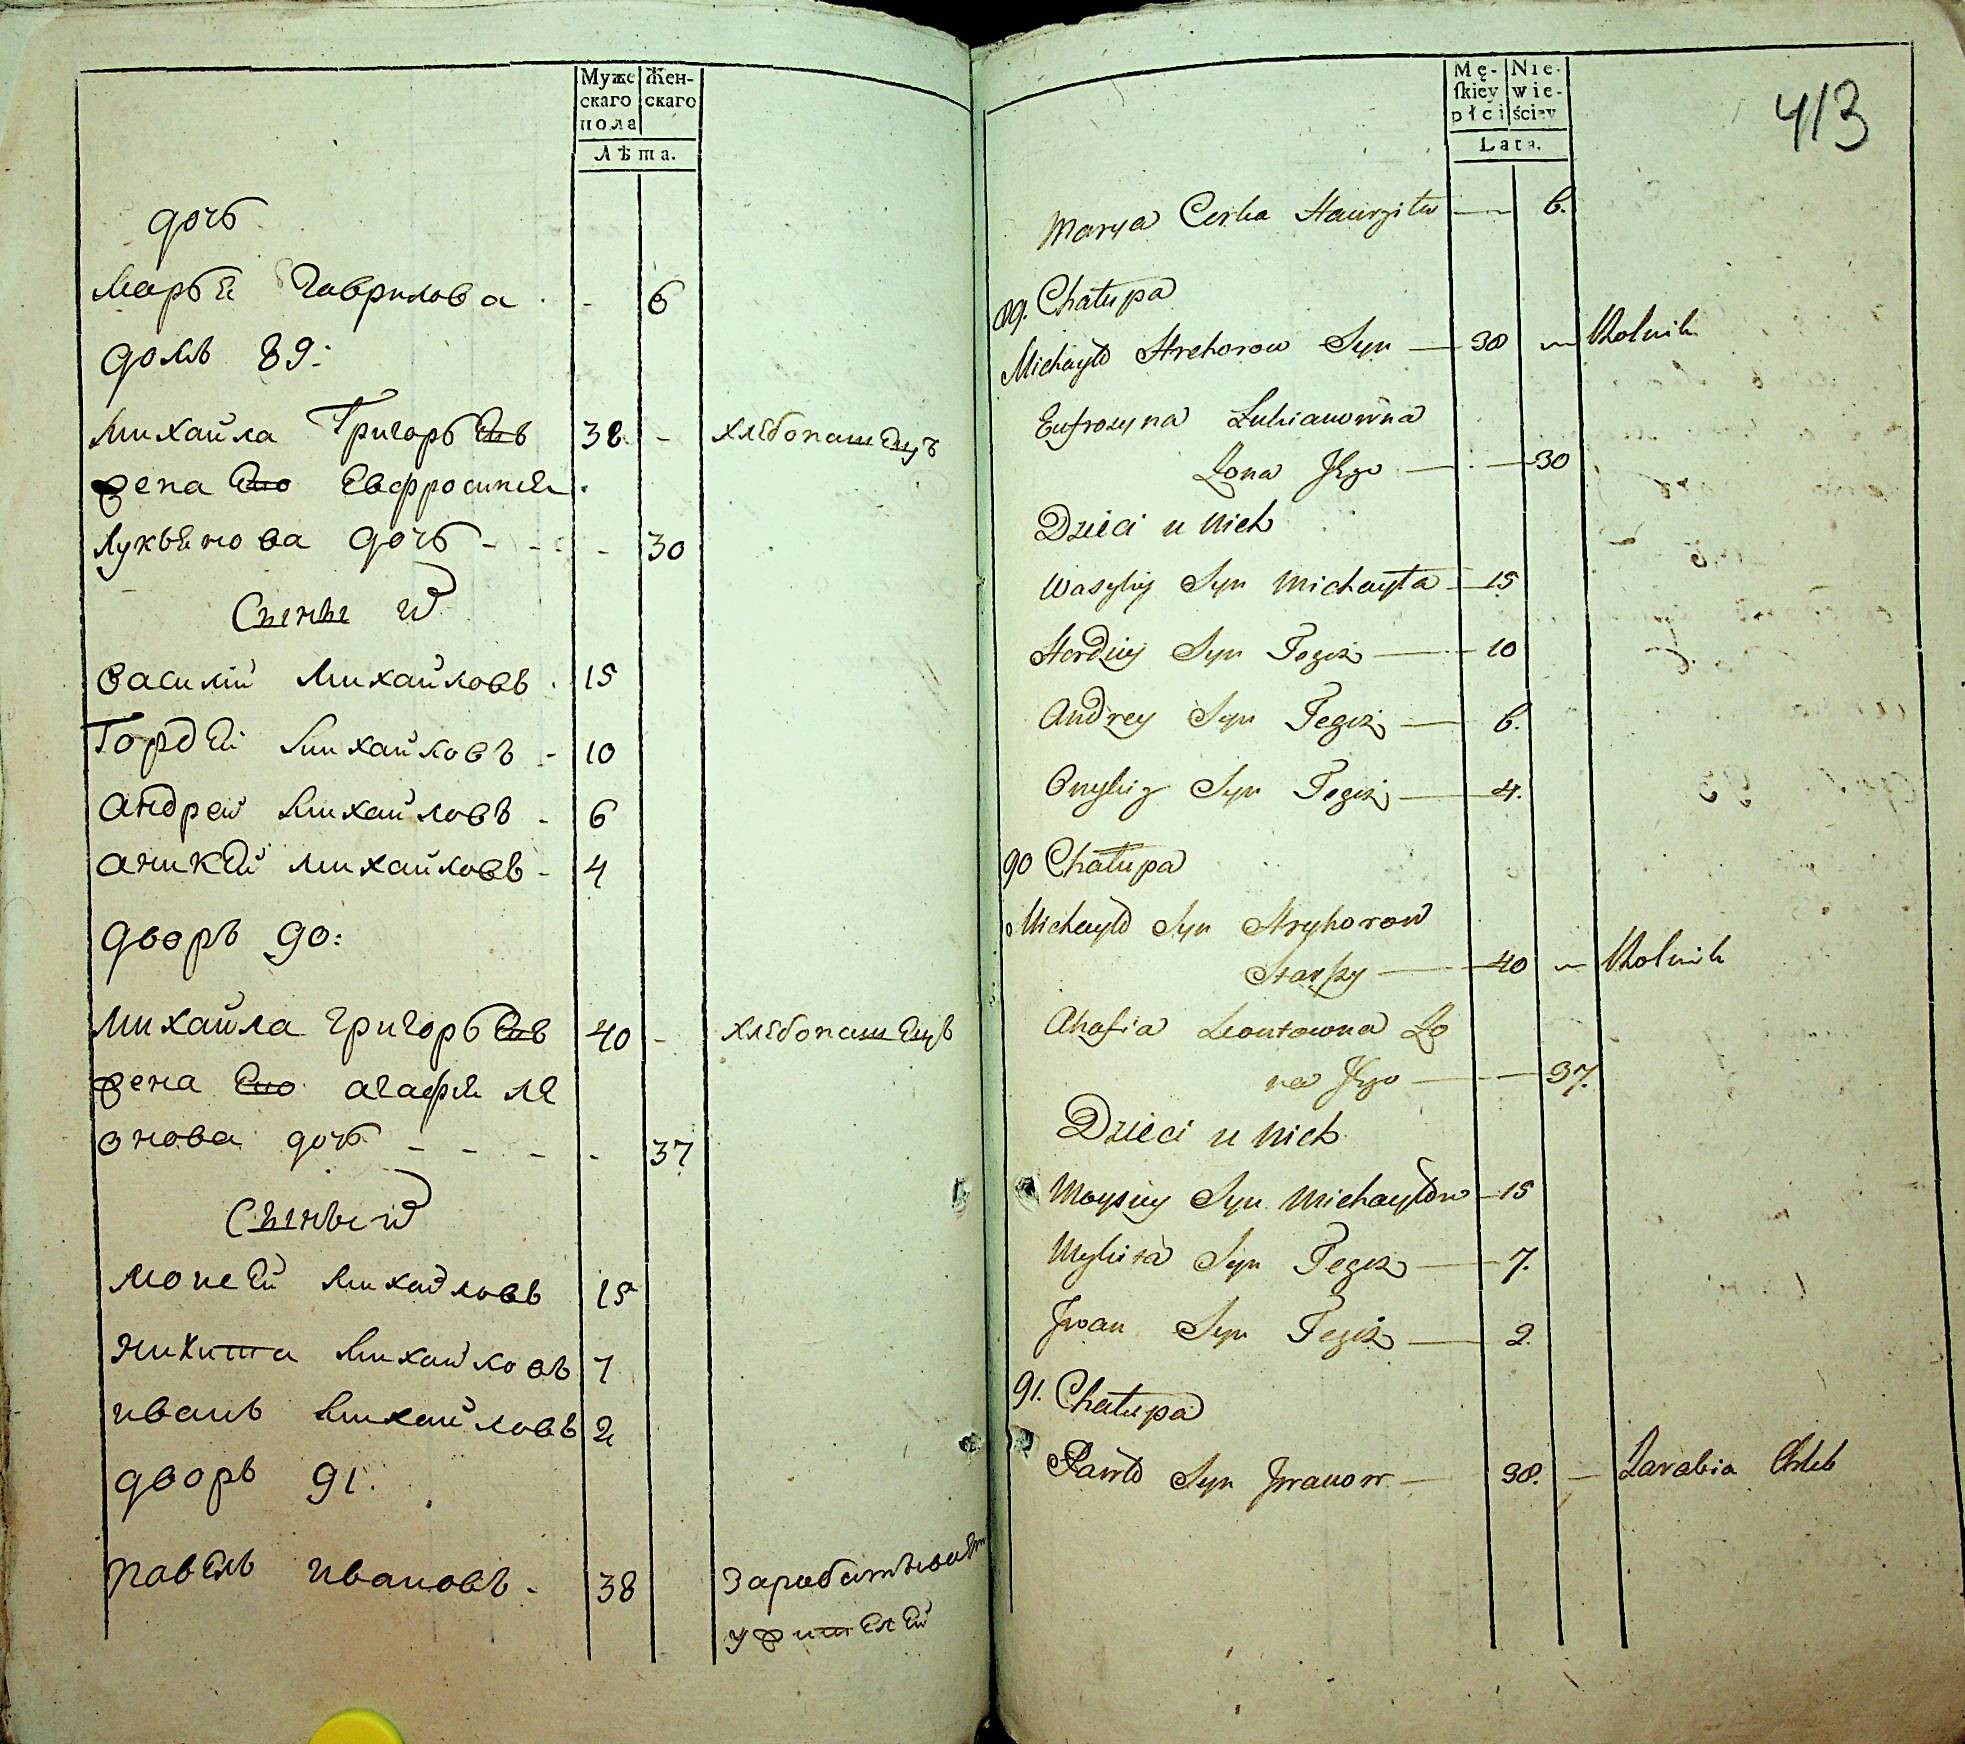 Муже Жен-
скаго скаго
пола
Лѣта.
дочь
Марья Гаврилова - 6
домъ 89:
Михайла Григорьевъ 38 - хлебопашецъ
жена ево Евфросинья
Лукьянова дочь - - - - 30
Сыны и<sup>х</sup>
Василій Михайловъ 15
Гордей Михайловъ - 10
Андрей Михайловъ - 6
Аникей Михайловъ - 4
дворъ 90:
Михайла Григорьевъ 40 - хлебопашецъ
жена ево Агафья Ле
онова дочь - - - - 37
Сыны их
Мосей Михайловъ 15
Никита Михайловъ 7
Иванъ Михайловъ 2
дворъ 91.
Павелъ Ивановъ - 38 Зарабатывает
у жителей
413
Mę- Nie-
skiey wie-
płci ściey
Lata.
Marya Corka Hawryła — 6.
89. Chałupa
Michayło Hrehorow Syn — 38 — Rolnik
Eufrozyna Łukianowna
Żona Jego — 30
Dzieci u Nich
Wasyliy Syn Michayła — 15
Hordiey Syn Tegoż — 10
Andrey Syn Tegoż — 6.
Onykiy Syn Tegoż — 4.
90 Chałupa
Michayło Syn Hryhorow
Starszy — 40 — Rolnik
Ahafia Leontowna Żo
na Jego — 37.
Dzieci u Nich
Moysiey Syn Michayłow — 15
Mykita Syn Tegoż — 7.
Jwan Syn Tegoż — 2.
91. Chałupa
Pawło Syn Jwanow — 38. — Zarabia Chleb